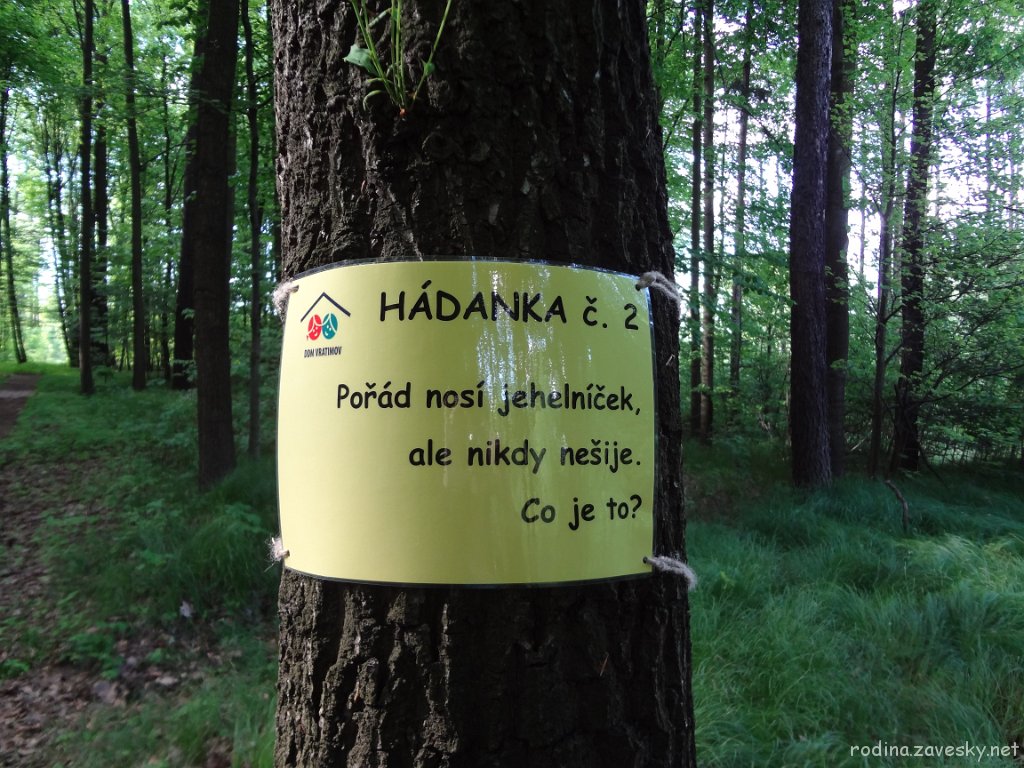 HÁDANKA č. 2
DDM VRATIMOV
Pořád nosí jehelníček,
ale nikdy nešije.
Co je to?
rodina.zavesky.net